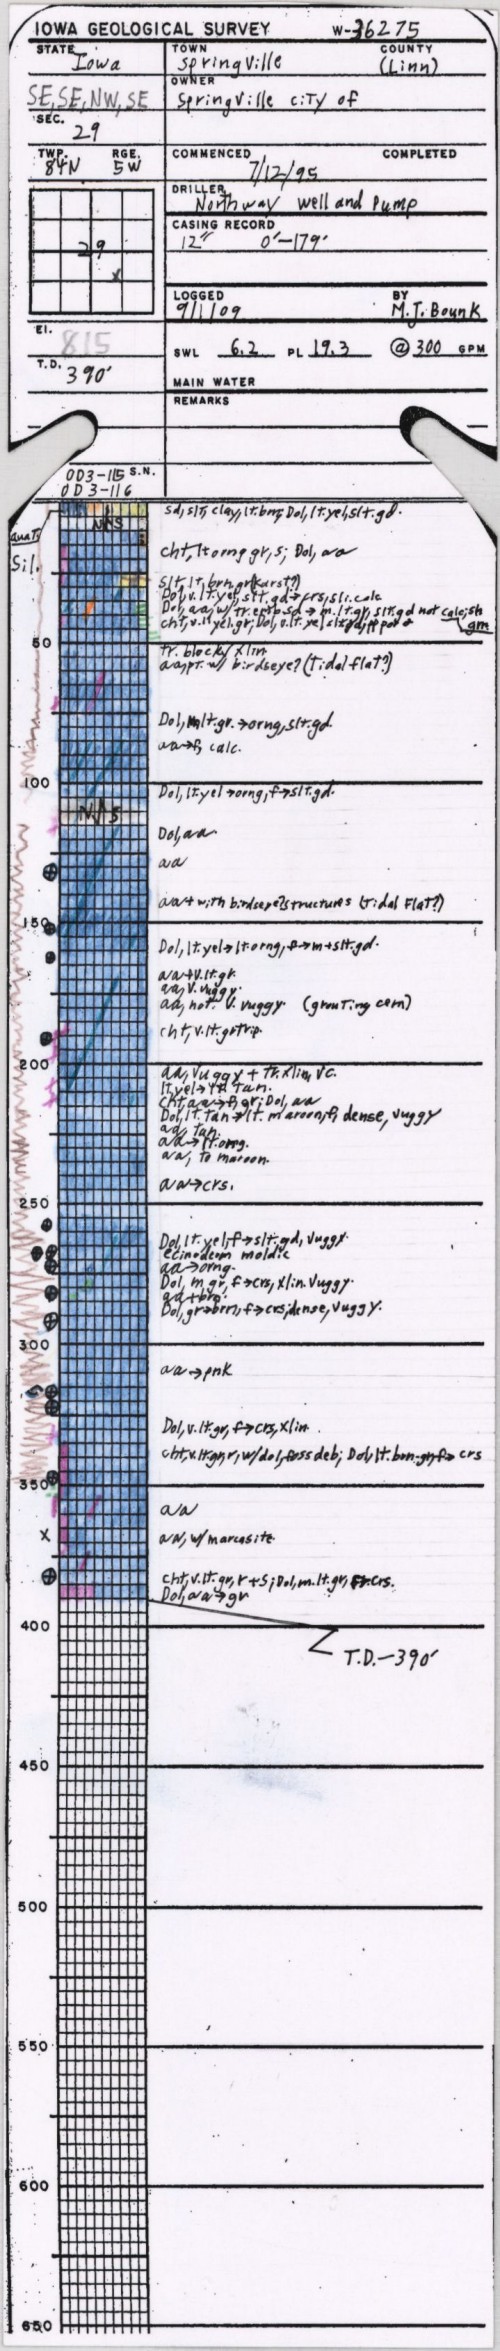 IOWA GEOLOGICAL SURVEY W-36275
STATE Iowa
TOWN Springville COUNTY (Linn)
OWNER Springville city of
SE, SE, NW, SE
SEC. 29
TWP. 84N RGE. 5W
COMMENCED 7/12/95 COMPLETED
DRILLER Northway well and Pump
CASING RECORD
12" 0'-179'
29
x
LOGGED 9/1/09 BY M.J. Bounk
El. 815
SWL 6.2 PL 19.3 @ 300 GPM
T.D. 390'
MAIN WATER
REMARKS
OD3-115 S.N.
OD3-116
sd, slt, clay, lt. brn; Dol, lt. yel, slt. gd.
NAS
Quat.
cht, lt orng gr, s; Dol, aa
Sil.
slt, lt. brn. gr (karst?)
Dol, v. lt. yel, slt. gd → crs, sli. calc
Dol, aa, w/ tr. → m. lt. gr, slt. gd not calc, sh
cht, v. lt yel. gr; Dol, v. lt. ye grn
50
tr. blocky xlin
aa, pt. w/ birdseye? (Tidal flat?)
Dol, m lt. gr. → orng, slt. gd
aa → f, calc.
100
Dol, lt. yel → orng, f → slt. gd.
NAS
Dol, aa
aa
aa + with birdseye? structures (Tidal Flat?)
150
Dol, lt. yel → lt. orng, f → m + slt. gd.
aa + v. lt. gr
aa, v. vuggy
aa, not v. vuggy (grouting cem)
cht, v. lt. gr
200
aa, vuggy + tr. xlin, vc.
lt. yel → tan.
cht, aa → gr; Dol, aa
Dol, lt. tan → lt. maroon, f, dense, vuggy
aa, tan.
aa → lt. orng.
aa, to maroon.
aa → crs.
250
Dol, lt. yel, f → slt. gd, vuggy.
ecinoderm moldic
aa → orng.
Dol, m. gr, f → crs, xlin. vuggy.
aa + brn.
Dol, gr → brn, f → crs, dense, vuggy.
300
aa → pnk
Dol, v. lt. gr, f → crs, xlin
cht, v. lt gr, r, w/ dol, foss deb; Dol, lt. brn-gr, f → crs
350
aa
aa, w/ marcasite
x
cht, v. lt. gr, r + s; Dol, m. lt. gr, crs.
Dol, aa → gr
400
T.D. - 390'
450
500
550
600
650